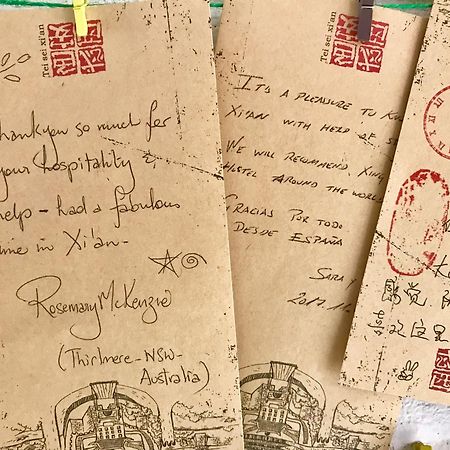 Tei sei xi'an
Thank you so much for
your hospitality &
help - had a fabulous
time in Xi'an -
Rosemary McKenzie
(Thirlmere - NSW -
Australia)
Tei sei xi'an
IT'S A PLEASURE TO
XI'AN WITH HELP OF
WE WILL RECOMMEND XING
HOSTEL AROUND THE WORLD
GRACIAS POR TODO
DESDE ESPAÑA
SARA Y
2017.11.
感觉
这里